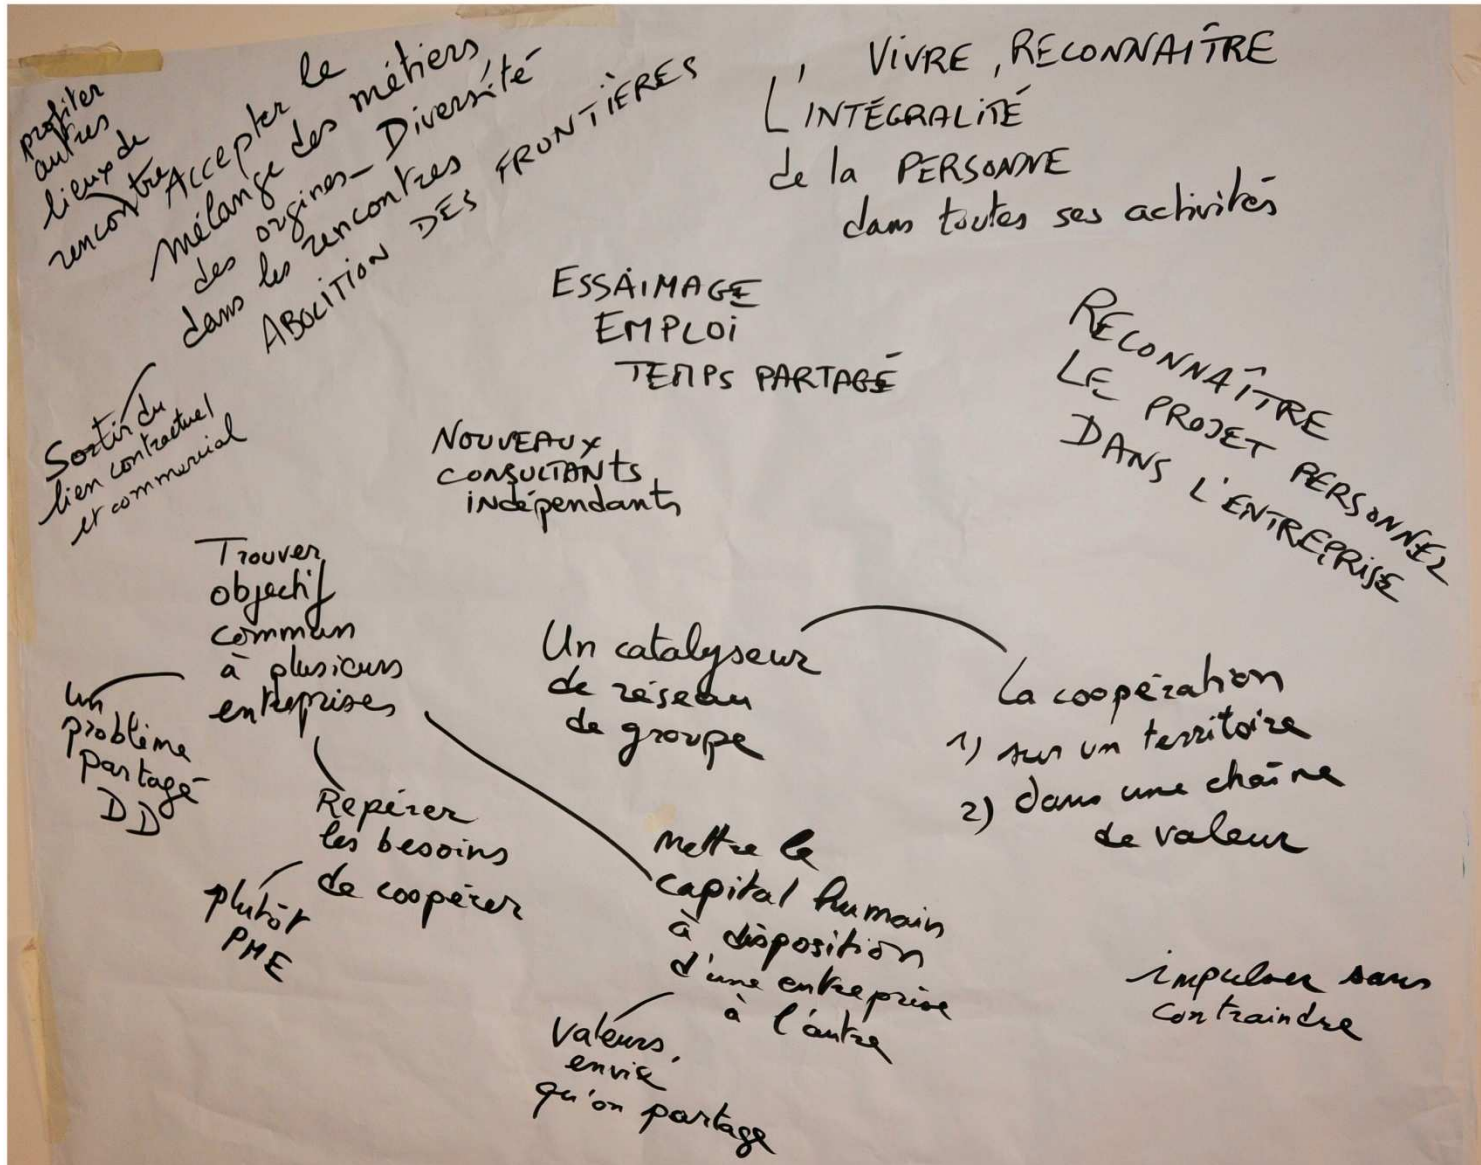 profiter
autres
lieux de
rencontre
Accepter le
mélange des métiers,
des origines – Diversité
dans les rencontres
ABOLITION DES FRONTIÈRES
VIVRE, RECONNAITRE
L'INTÉGRALITÉ
de la PERSONNE
dans toutes ses activités
ESSAIMAGE
EMPLOI
TEMPS PARTAGÉ
RECONNAÎTRE
LE PROJET PERSONNEL
DANS L'ENTREPRISE
Sortir du
lien contractuel
et commercial
NOUVEAUX
CONSULTANTS
indépendants
Trouver
objectif
commun
à plusieurs
entreprises
un
problème
partagé
DD
Repérer
les besoins
de coopérer
plutôt
PME
Un catalyseur
de réseau
de groupe
La coopération
1) sur un territoire
2) dans une chaîne
de valeur
Mettre le
capital humain
à disposition
d'une entreprise
à l'autre
Valeurs,
envie
qu'on partage
impulser sans
contraindre